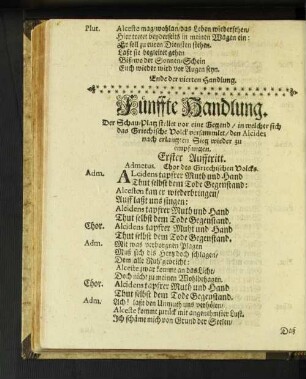 Plut. Alceste mag wohlan/das Leben wiedersehen/
Hier tretet beyderseits in meinen Wagen ein:
Er soll zu euren Diensten stehen.
Last sie begleitet gehen
Biß wo der Sonnen-Schein
Euch wieder wird vor Augen seyn.
Ende der vierten Handlung.
Fünffte Handlung.
Der Schau-Platz stellet vor eine Gegend/ in welcher sich
das Griechische Volck versammlet/ den Alcides
nach erlangten Sieg wieder zu
empfangen.
Erster Aufftritt.
Admetus. Chor des Griechischen Volcks.
Adm. Alcidens tapfrer Muth und Hand
Thut selbst dem Tode Gegenstand:
Alcesten kan er wiederbringen/
Auff last uns singen:
Alcidens tapfrer Muth und Hand
Thut selbst dem Tode Gegenstand.
Chor. Alcidens tapfrer Muht und Hand
Thut selbst dem Tode Gegenstand.
Adm. Mit was verborgnen Plagen
Muß sich das Hertz doch schlagen/
Dem alle Ruh gebricht:
Alceste zwar kommt an das Licht/
Doch nicht zu meinen Wohlbehagen.
Chor. Alcidens tapfrer Muth und Hand
Thut selbst dem Tode Gegenstand.
Adm. Ach! last den Unmuth uns verhölen/
Alceste kommt zurück mit angenehmster Lust.
Ich schäme mich von Grund der Seelen/
Daß